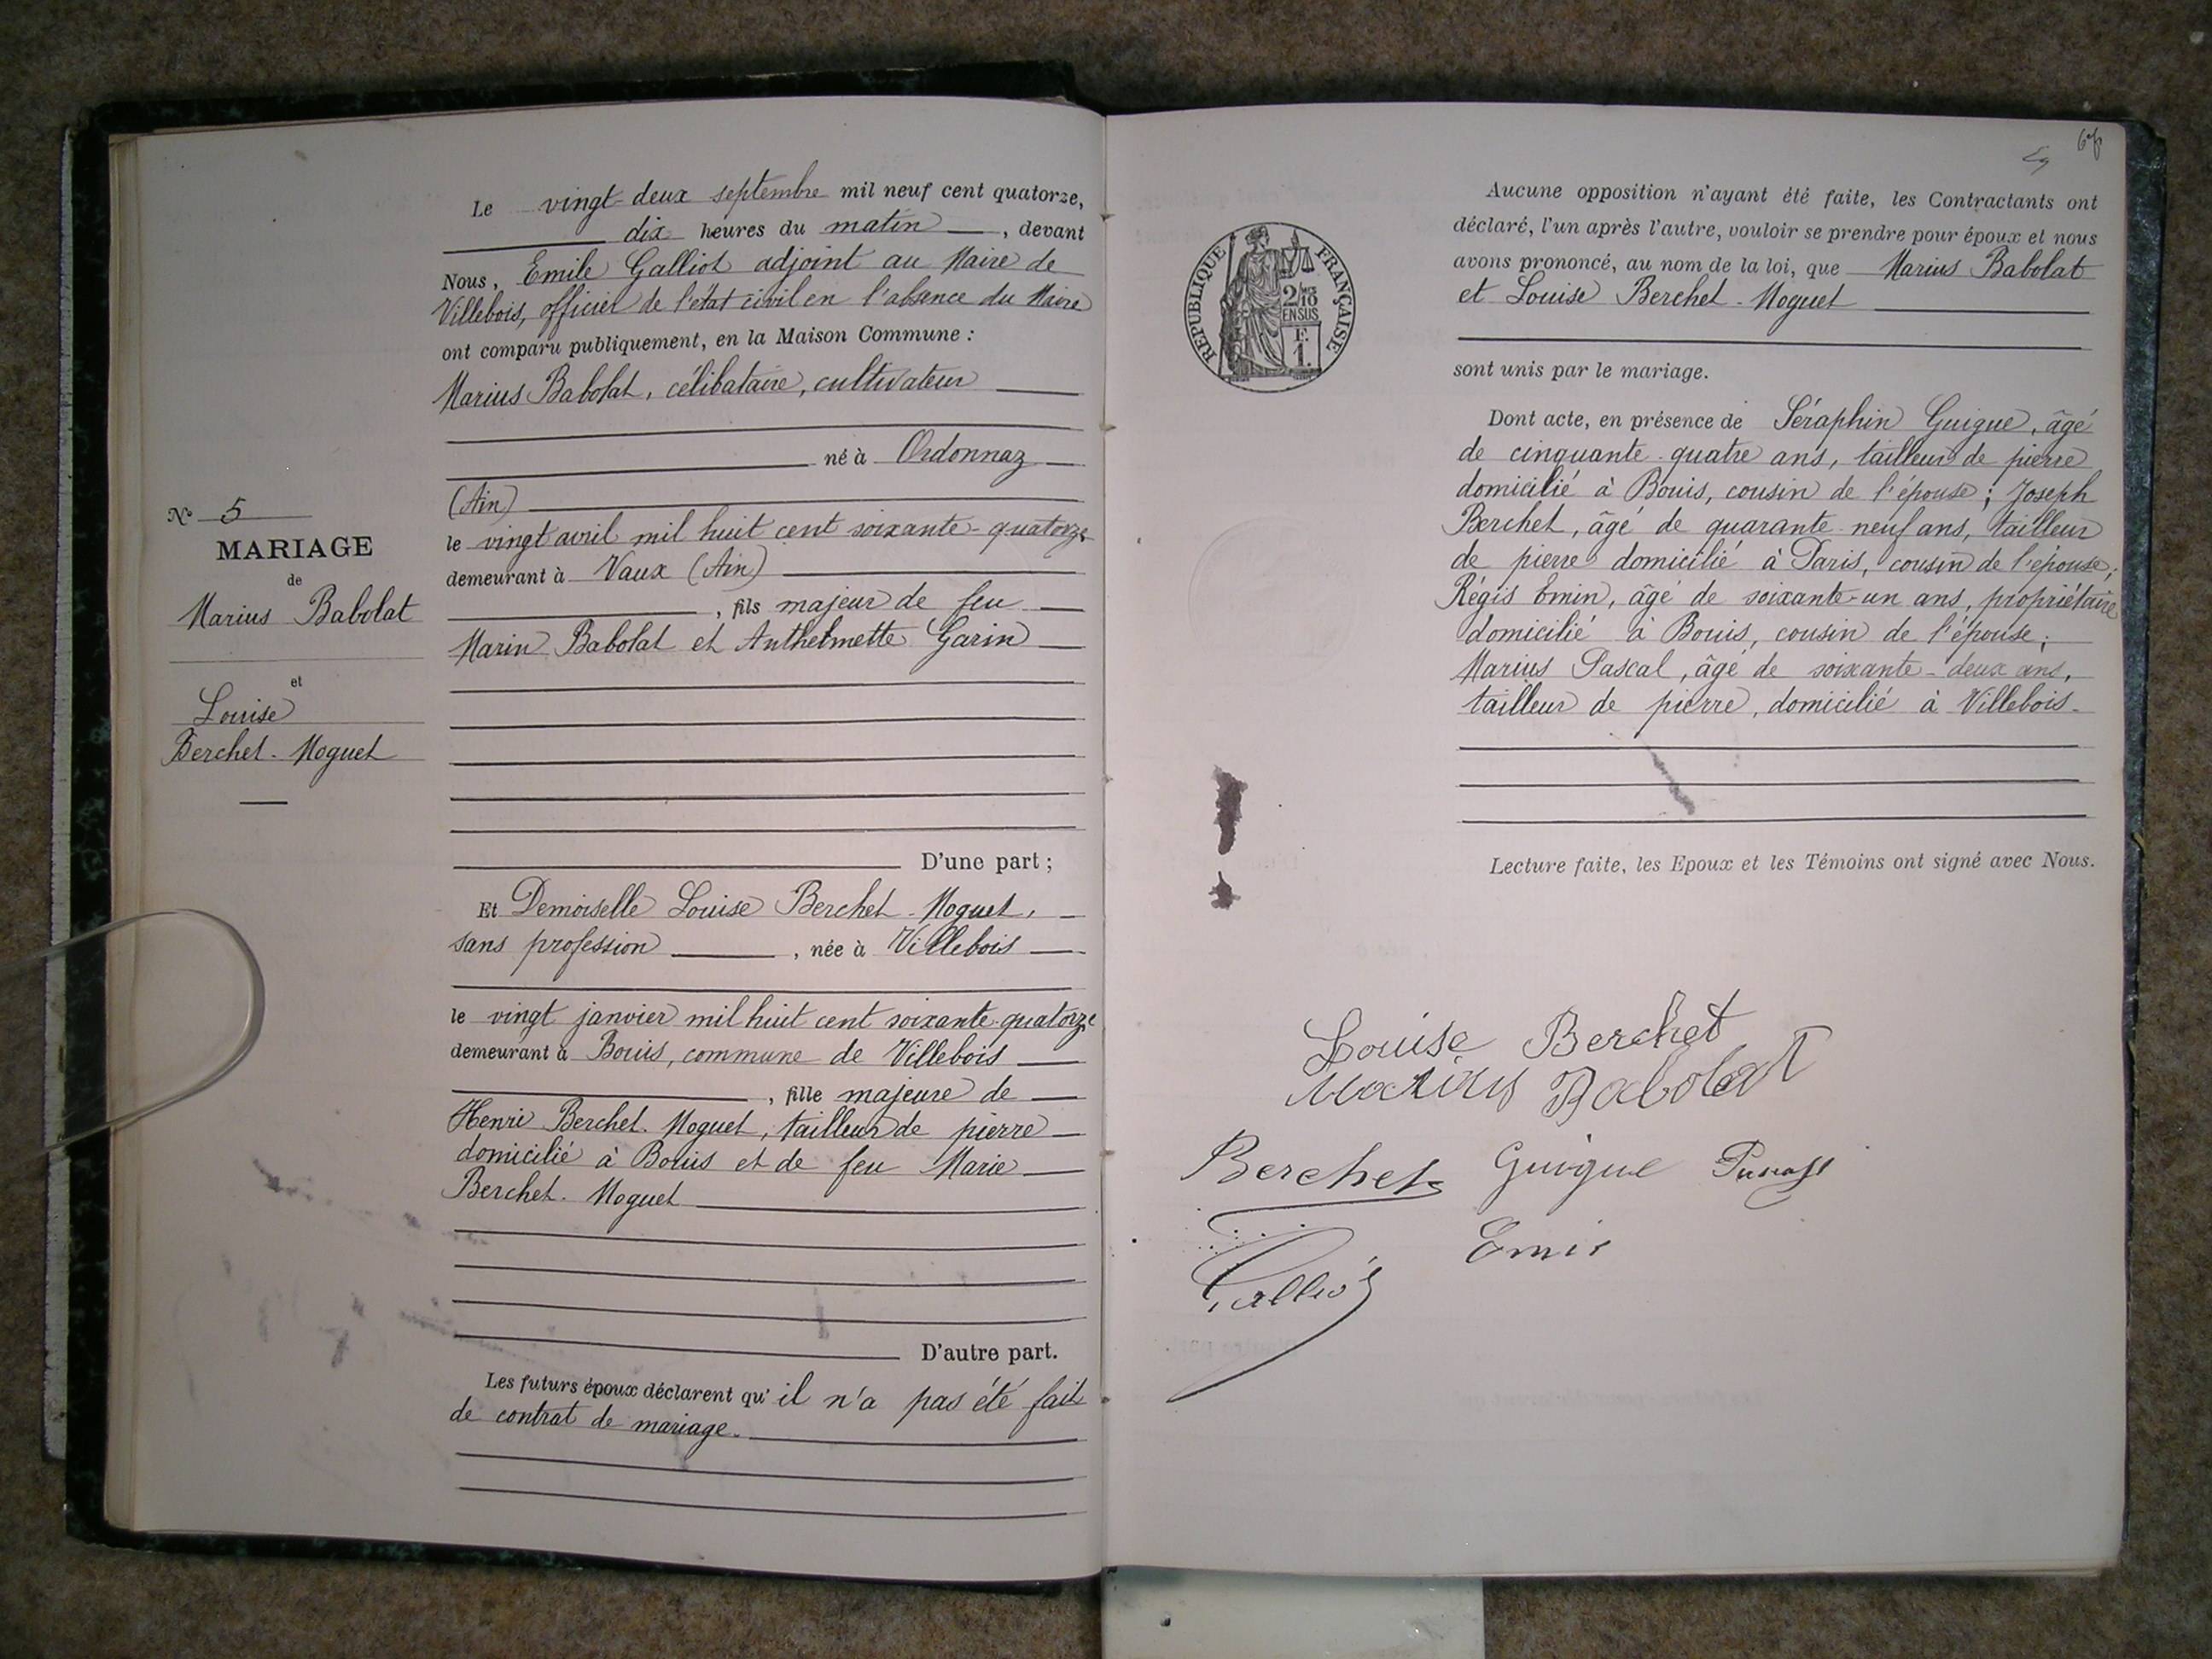 Le vingt-deux septembre mil neuf cent quatorze,
dix heures du matin, devant
Nous, Emile Galliot adjoint au Maire de
Villebois, officier de l'état civil en l'absence du Maire
ont comparu publiquement, en la Maison Commune :
Marius Babolat, célibataire, cultivateur
né à Ordonnaz
(Ain)
le vingt avril mil huit cent soixante-quatorze
demeurant à Vaux (Ain)
, fils majeur de feu
Marin Babolat et Anthelmette Garin
D'une part ;
Et Demoiselle Louise Berchet-Moguet,
sans profession, née à Villebois
le vingt janvier mil huit cent soixante-quatorze
demeurant à Bouis, commune de Villebois
, fille majeure de
Henri Berchet-Moguet, tailleur de pierre
domicilié à Bouis et de feu Marie
Berchet-Moguet
D'autre part.
Les futurs époux déclarent qu'il n'a pas été fait
de contrat de mariage.
N° 5
MARIAGE
de
Marius Babolat
et
Louise
Berchet-Moguet
RÉPUBLIQUE FRANÇAISE
2/10
EN SUS
F.
1.
Aucune opposition n'ayant été faite, les Contractants ont
déclaré, l'un après l'autre, vouloir se prendre pour époux et nous
avons prononcé, au nom de la loi, que Marius Babolat
et Louise Berchet-Moguet
sont unis par le mariage.
Dont acte, en présence de Séraphin Guigue, âgé
de cinquante-quatre ans, tailleur de pierre
domicilié à Bouis, cousin de l'épouse ; Joseph
Berchet, âgé de quarante-neuf ans, tailleur
de pierre domicilié à Paris, cousin de l'épouse ;
Régis Emin, âgé de soixante-un ans, propriétaire
domicilié à Bouis, cousin de l'épouse ;
Marius Pascal, âgé de soixante-deux ans,
tailleur de pierre, domicilié à Villebois.
Lecture faite, les Epoux et les Témoins ont signé avec Nous.
Louise Berchet
Marius Babolat
Berchet Guigue
Emin
Galliot